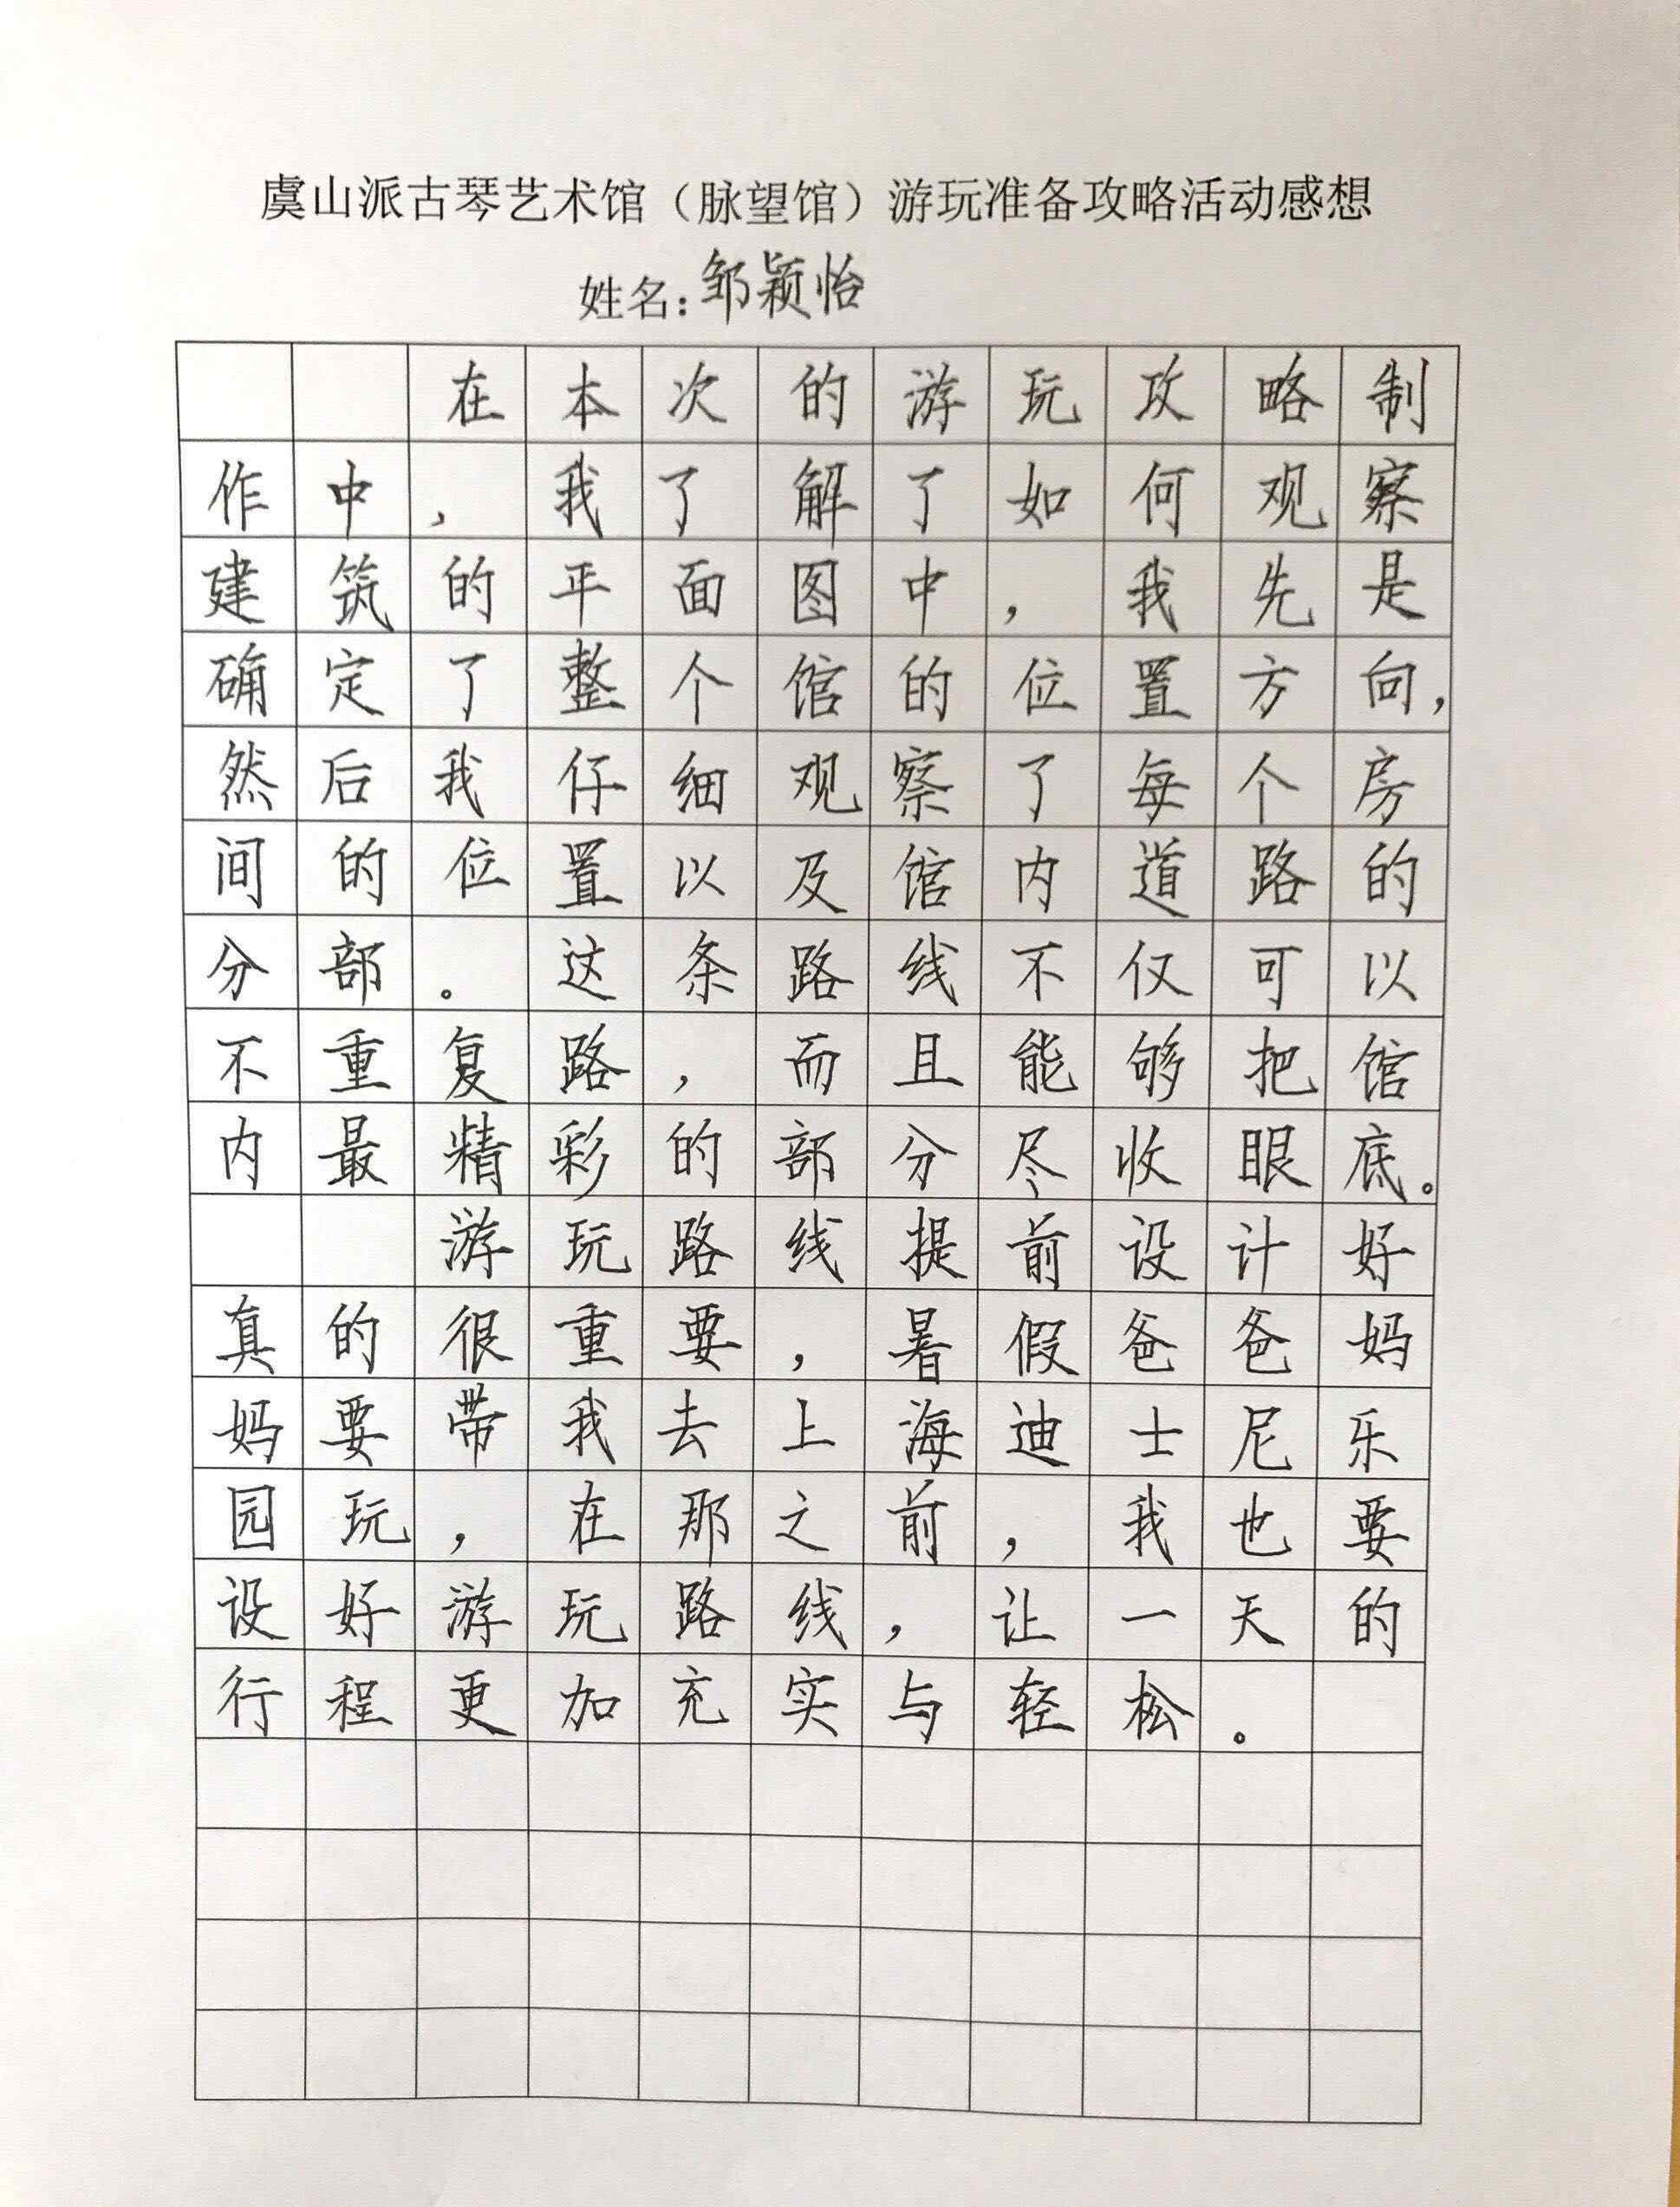 虞山派古琴艺术馆（脉望馆）游玩准备攻略活动感想
姓名：邹颖怡
在本次的游玩攻略制
作中，我了解了如何观察
建筑的平面图中，我先是
确定了整个馆的位置方向，
然后我仔细观察了每个房
间的位置以及馆内道路的
分部。这条路线不仅可以
不重复路，而且能够把馆
内最精彩的部分尽收眼底。
游玩路线提前设计好
真的很重要，暑假爸爸妈
妈要带我去上海迪士尼乐
园玩，在那之前，我也要
设好游玩路线，让一天的
行程更加充实与轻松。